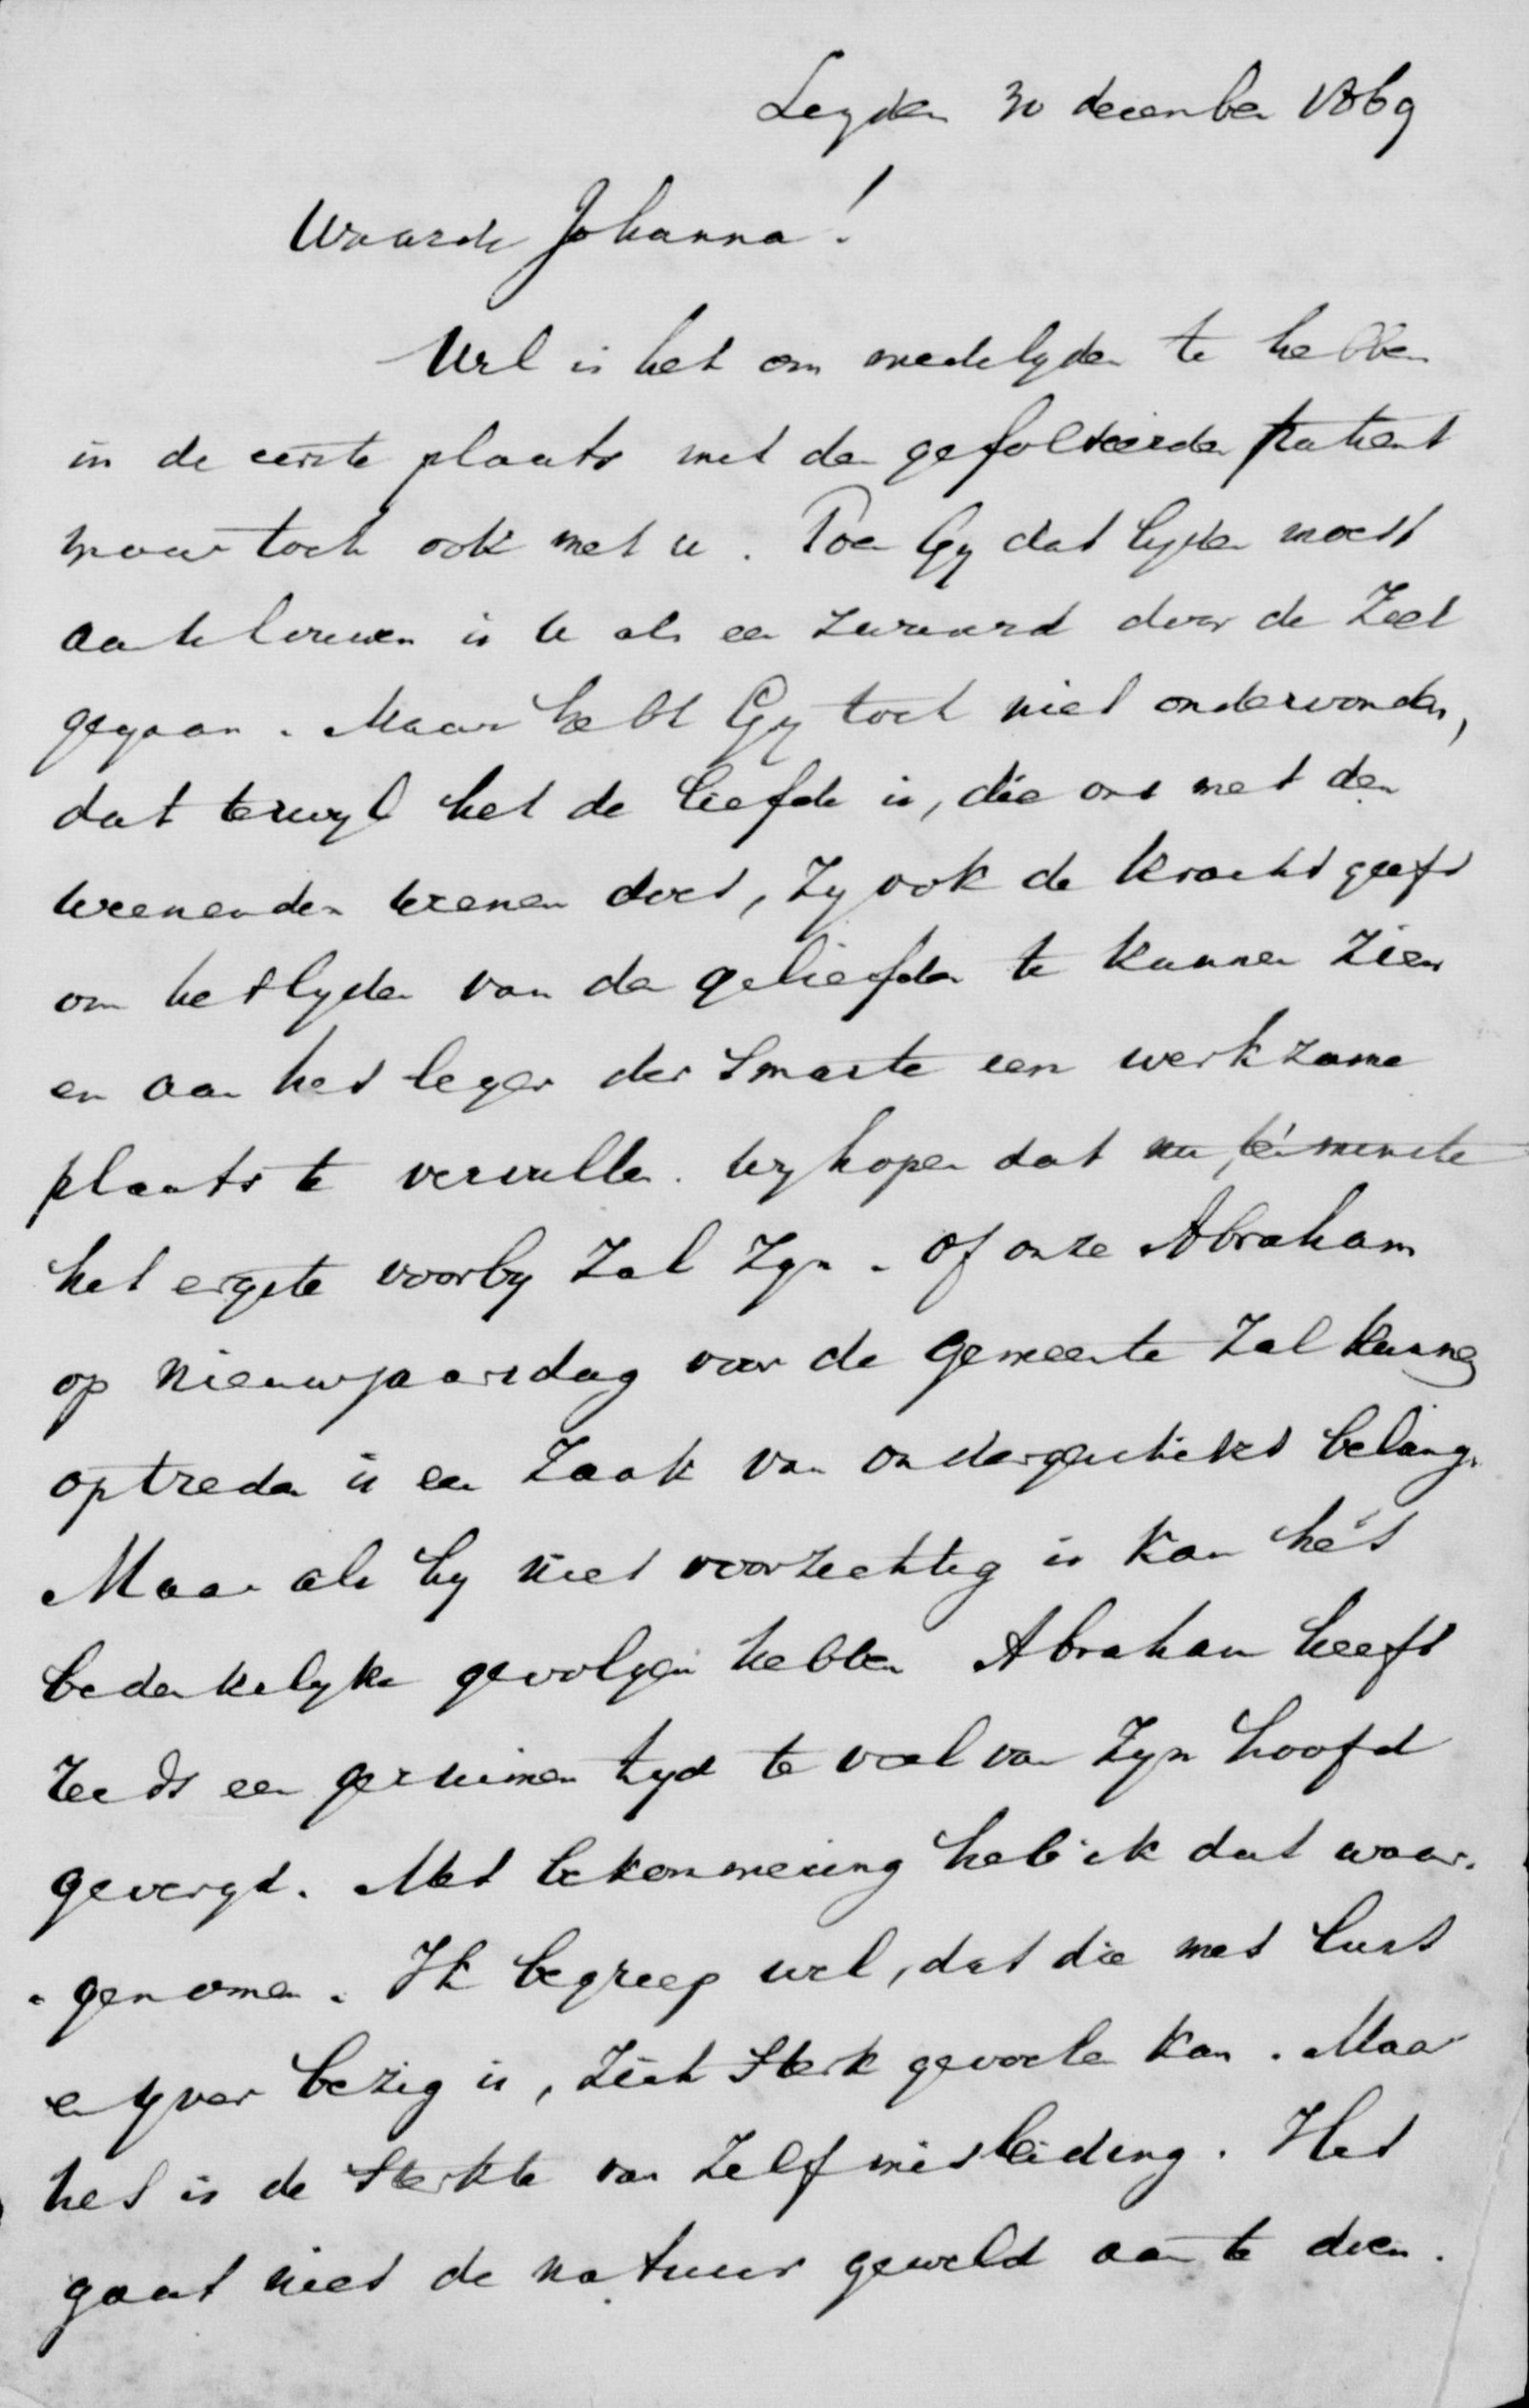 Leyden 30 december 1869
Waarde Johanna!
Wel is het om medelyden te hebben
in de eerste plaats met den gefolteerden patient
maar toch ook met u. Toen Gy dat lyden moest
aanschouwen is u als een zwaard door de Ziel
gegaan. Maar hebt Gy toch niet ondervonden,
dat terwyl het de liefde is, die ons met den
weenenden weenen doet, Zy ook de kracht geeft
om het lyden van den geliefden te kunnen Zien
en aan het leger der Smarte een werkzame
plaats te vervullen. wy hopen dat nu, ten minste
het ergste voorby Zal Zyn. Of onze Abraham
op nieuwjaarsdag voor de gemeente Zal kunnen
optreden is een Zaak van ondergeschikt belang.
Maar als hy niet voorzichtig is kan het
bedenkelyke gevolgen hebben Abraham heeft
reeds een geruimen tyd te veel van Zyn hoofd
gevergd. Met bekommering heb ik dat waar-
-genomen. Ik begreep wel, dat die met lust
en yver bezig is, Zich Sterk gevoelen kan. Maar
het is de Sterkte van Zelfmisleiding. Het
gaat niet de natuur geweld aan te doen.